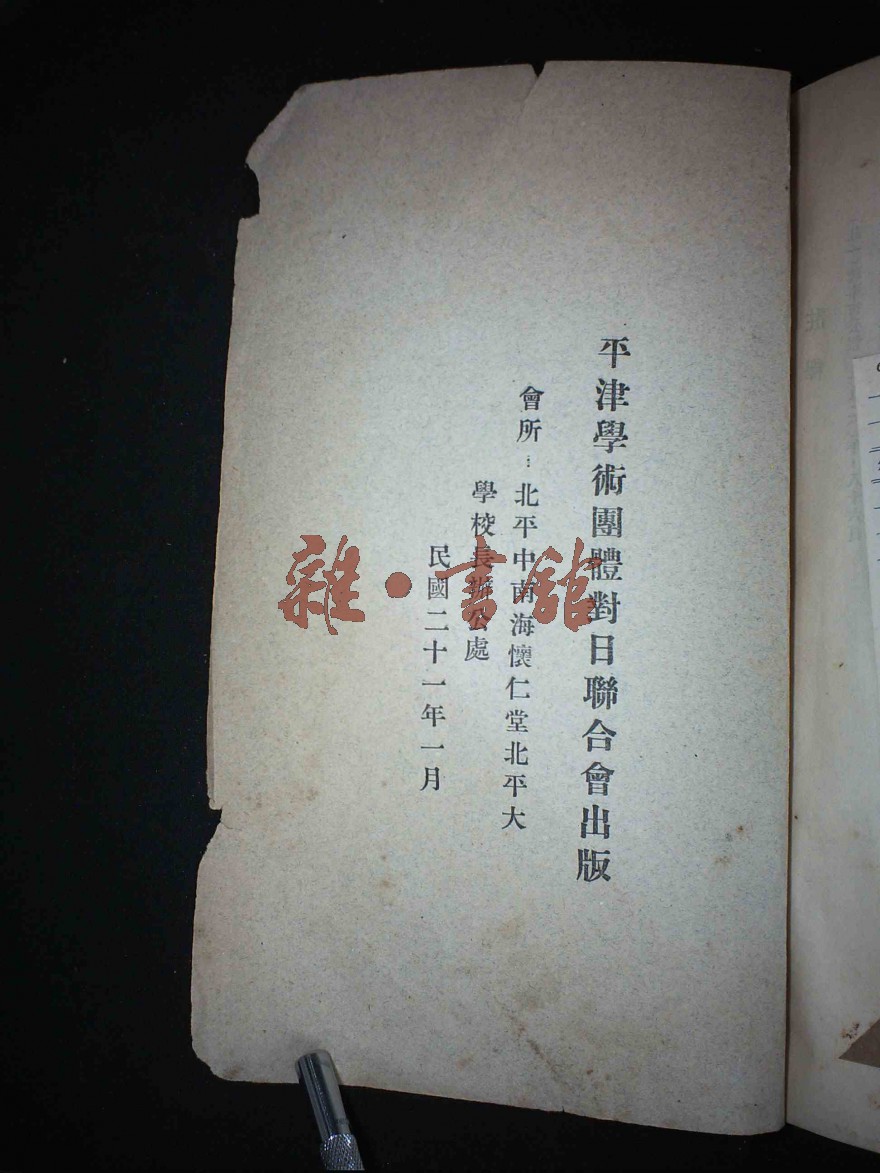 平津學術團體對日聯合會出版
會所：北平中南海懷仁堂北平大
學校長辦公處
民國二十一年一月
雜·書館